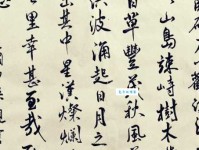 觀滄
山島竦峙樹木
百草豐茂秋風
洪波涌起日月之
出其中星漢燦爛
里幸甚至哉